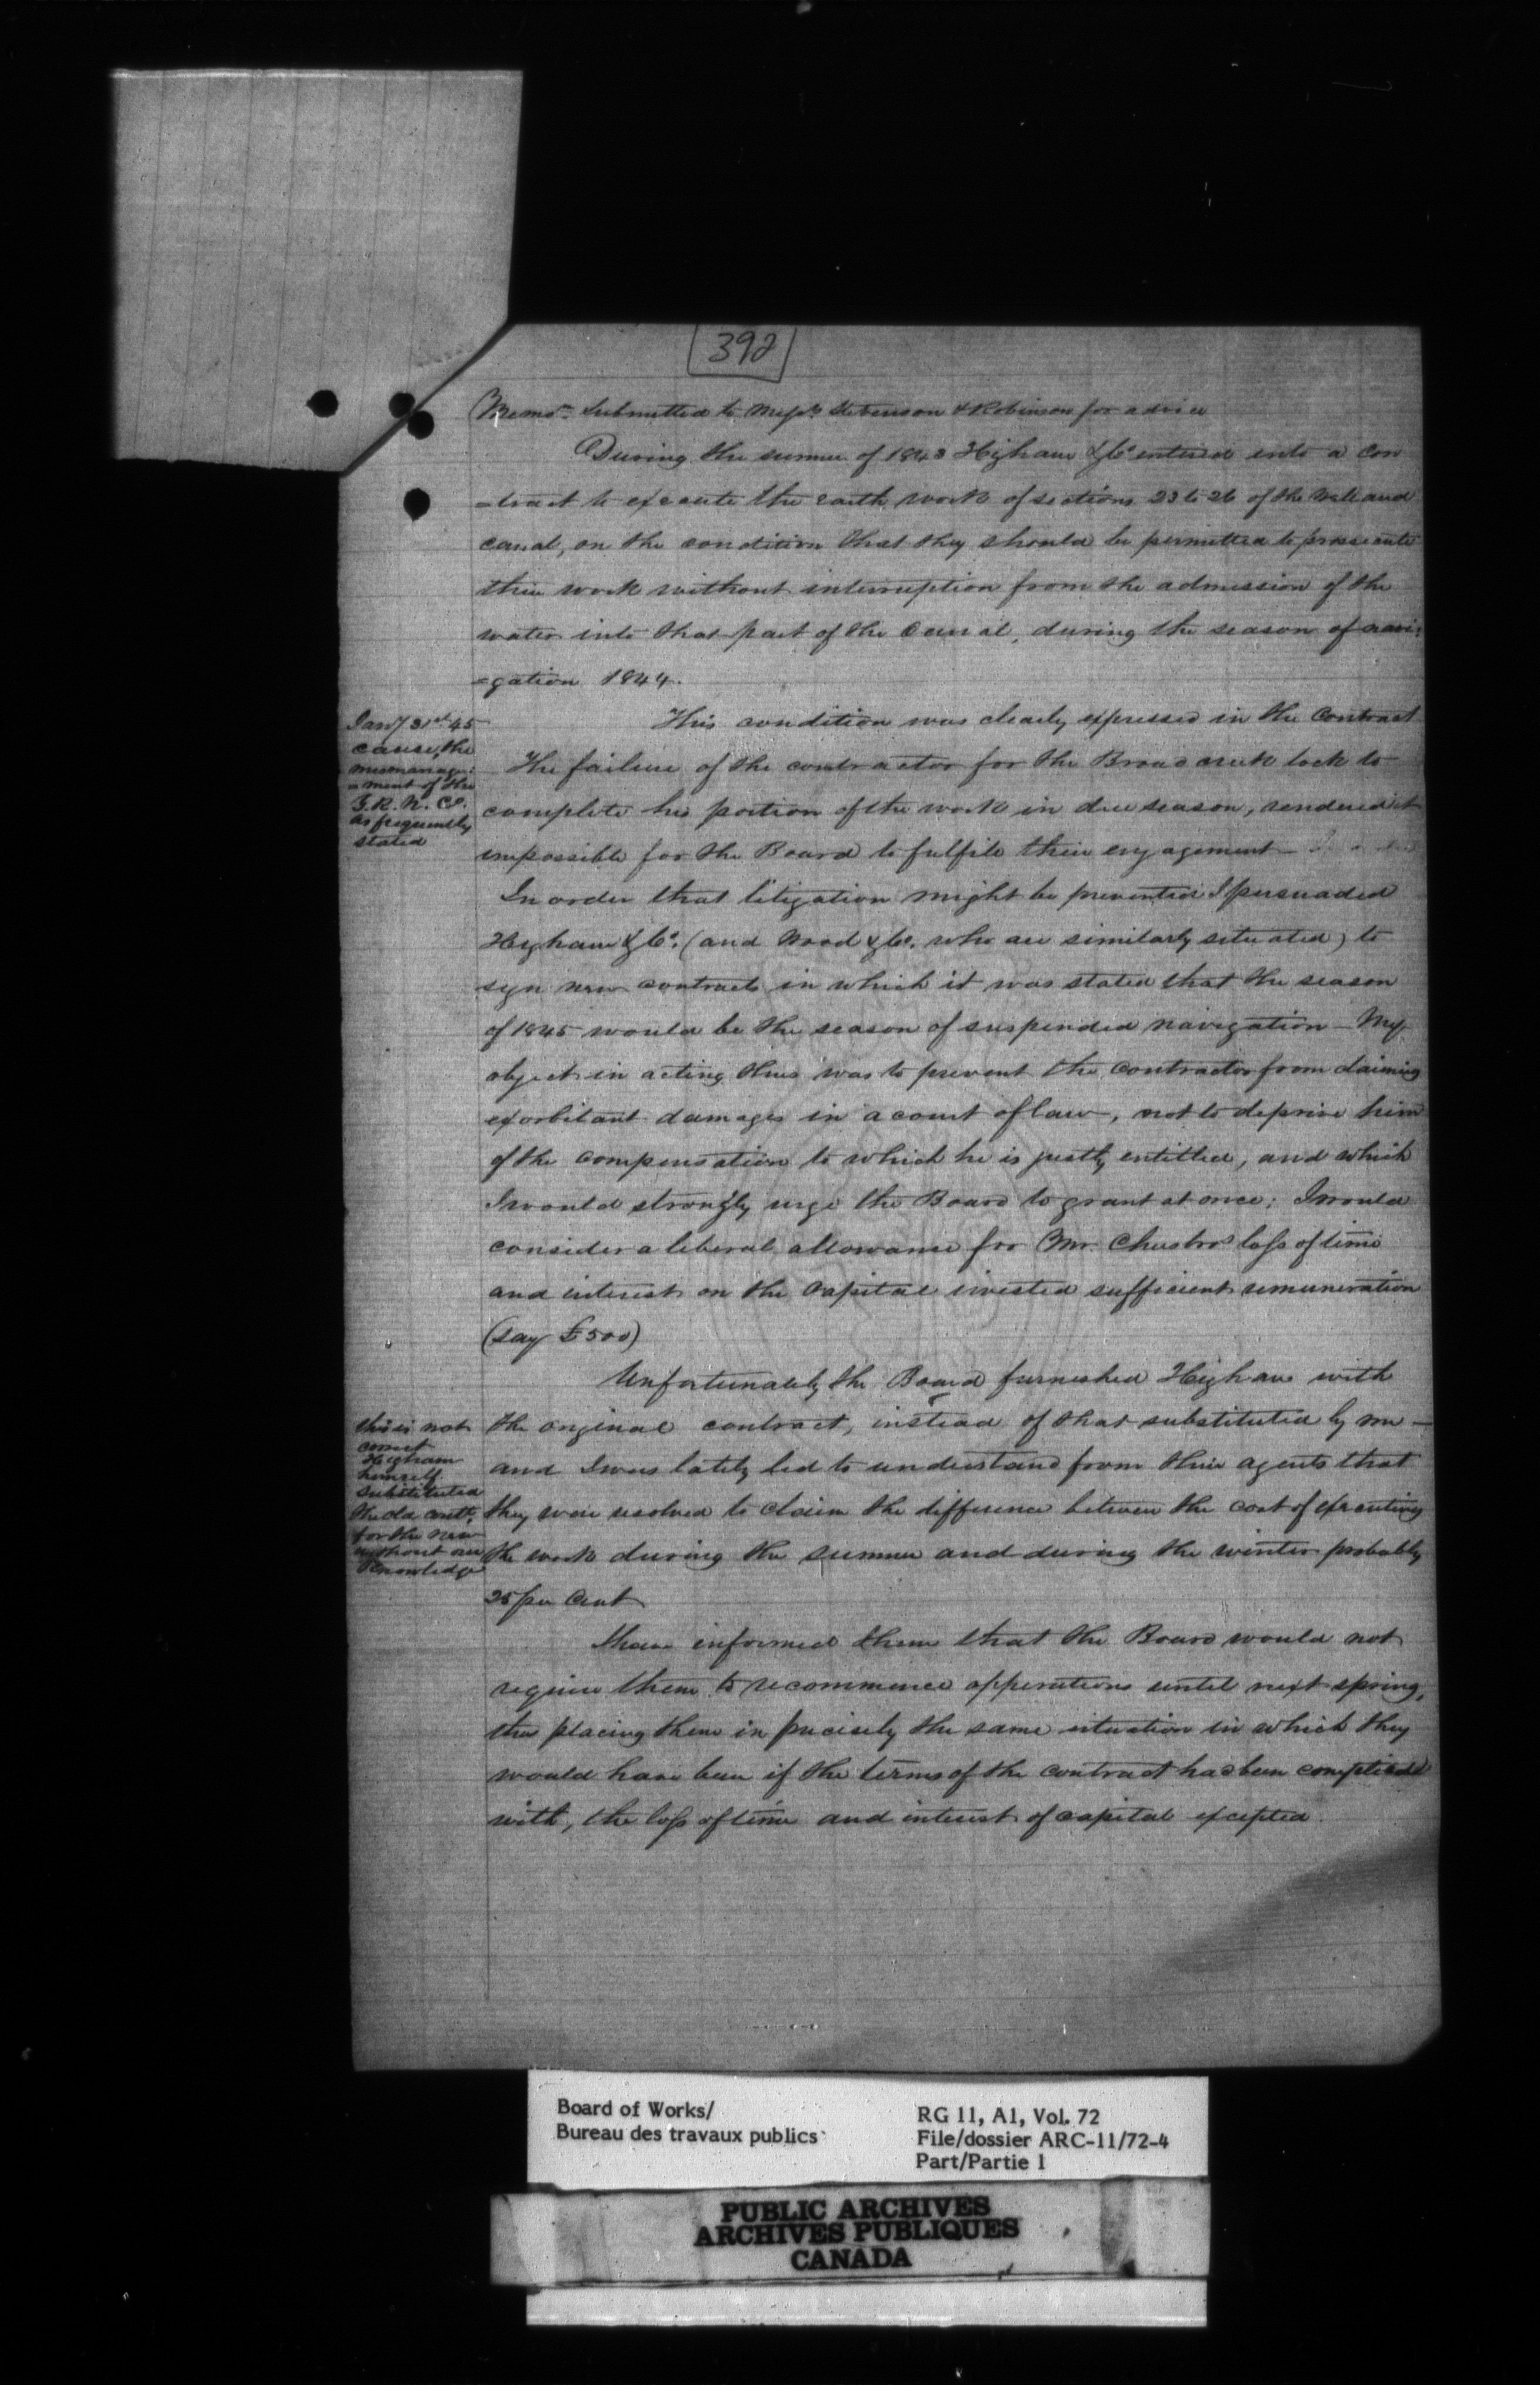 392
Memo. Submitted to Messrs Stevenson & Robinson for advice
During the summer of 1843 Higham & Co entered into a con
=tract to execute the earth work of sections 23 to 26 of the Welland
canal, on the condition that they should be permitted to prosecute
their work without interruption from the admission of the
water into that part of the Canal, during the season of navi=
=gation 1844.
This condition was clearly expressed in the Contract
Jany 31st 45
cause, the
mismanage=
=ment of the
G.R.N. Co.
as frequently
stated
The failure of the contractor for the Broad creek lock to
complete his portion of the work in due season, rendered it
impossible for the Board to fulfile their engagement
In order that litigation might be prevented I persuaded
Higham & Co. (and Wood & Co. who are similarly situated) to
sign new contracts in which it was stated that the season
of 1845 would be the season of suspended navigation — My
object in acting thus was to prevent the contractor from claiming
exorbitant damages in a court of law, not to deprive him
of the compensation to which he is justly entitled, and which
I would strongly urge the Board to grant at once; I would
consider a liberal allowance for Mr. loss of time
and interest on the capital invested sufficient remuneration
(say £500)
Unfortunately the Board furnished Higham with
the original contract, instead of that substituted by me —
this is not
correct
Higham
himself
substituted
the old contt.
for the new
without our
knowledge
and I was lately led to understand from their agents that
they were resolved to claim the difference between the cost of executing
the work during the summer and during the winter probably
25 per Cent
I have informed them that the Board would not
require them to recommence opperations until next spring,
thus placing them in precisely the same situation in which they
would have been if the terms of the contract had been complied
with, the loss of time and interest of capital excepted.
Board of Works/
Bureau des travaux publics
RG 11, A1, Vol. 72
File/dossier ARC-11/72-4
Part/Partie 1
PUBLIC ARCHIVES
ARCHIVES PUBLIQUES
CANADA